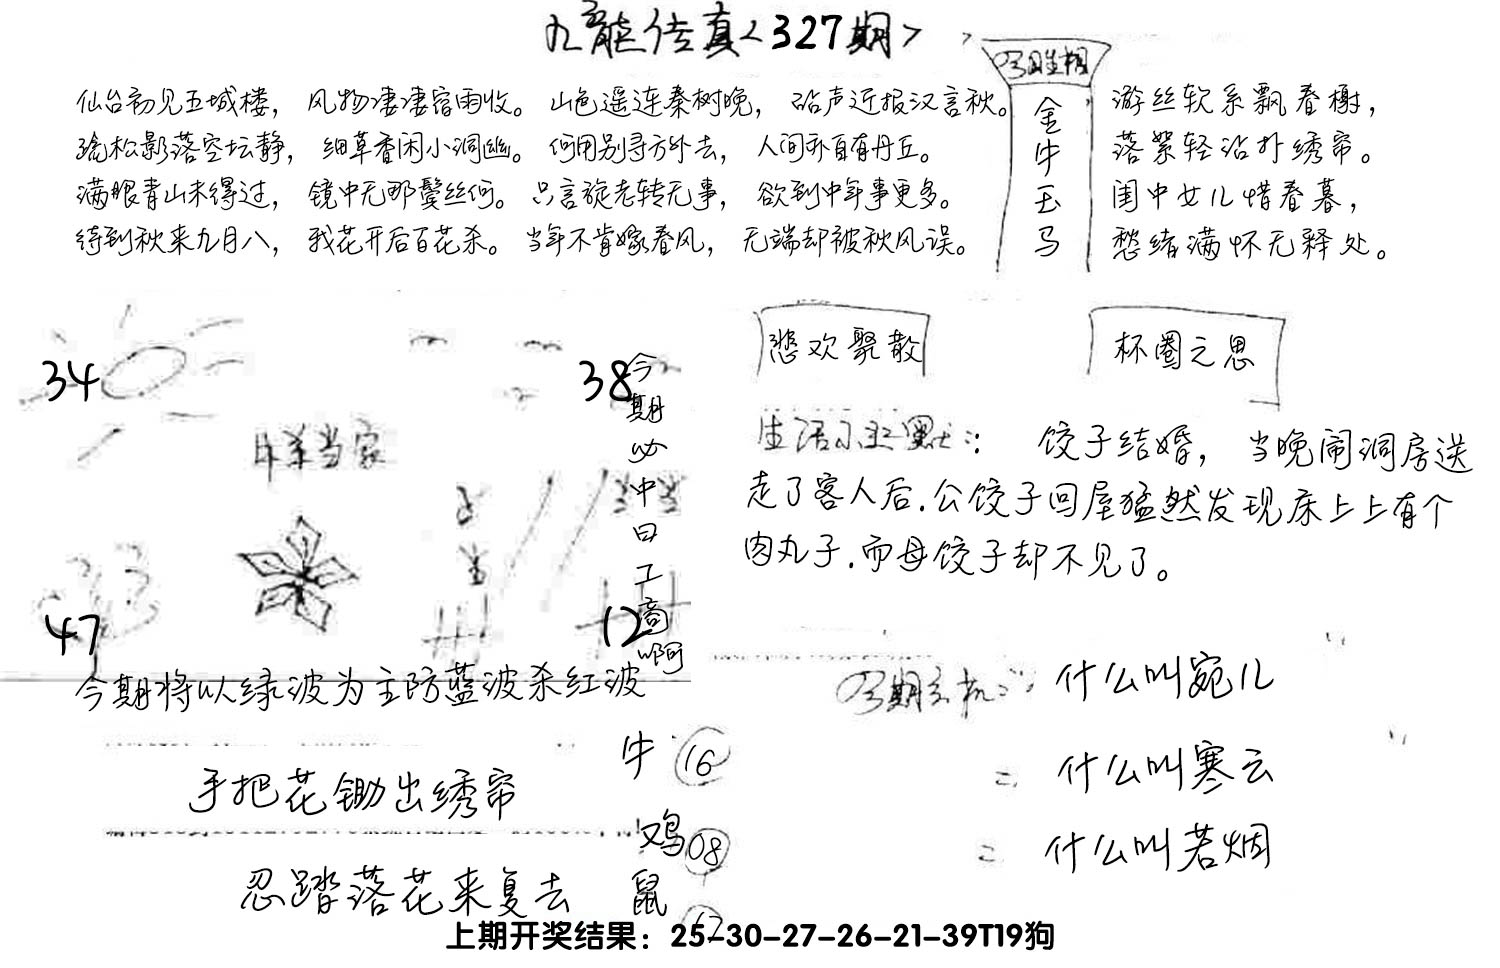 九龙传真<327期>
今日生相
金牛玉马
仙台初见五城楼，风物凄凄宿雨收。山色遥连秦树晚，砧声近报汉言秋。
疏松影落空坛静，细草香闲小洞幽。何用别寻方外去，人间亦自有丹丘。
满眼青山未得过，镜中无那鬓丝何。只言旋老转无事，欲到中年事更多。
待到秋来九月八，我花开后百花杀。当年不肯嫁春风，无端却被秋风误。
游丝软系飘春榭，
落絮轻沾扑绣帘。
闺中女儿惜春暮，
愁绪满怀无释处。
悲欢聚散
杯圈之思
34
38
47
12
今期必中曰工商啊
今期将以绿波为主防蓝波杀红波
饺子结婚，当晚闹洞房送
走了客人后.公饺子回屋猛然发现床上上有个
肉丸子.而母饺子却不见了。
什么叫宛儿
= 什么叫寒云
= 什么叫若烟
手把花锄出绣帘
忍踏落花来复去
牛 16
鸡 08
鼠
上期开奖结果：25-30-27-26-21-39T19狗